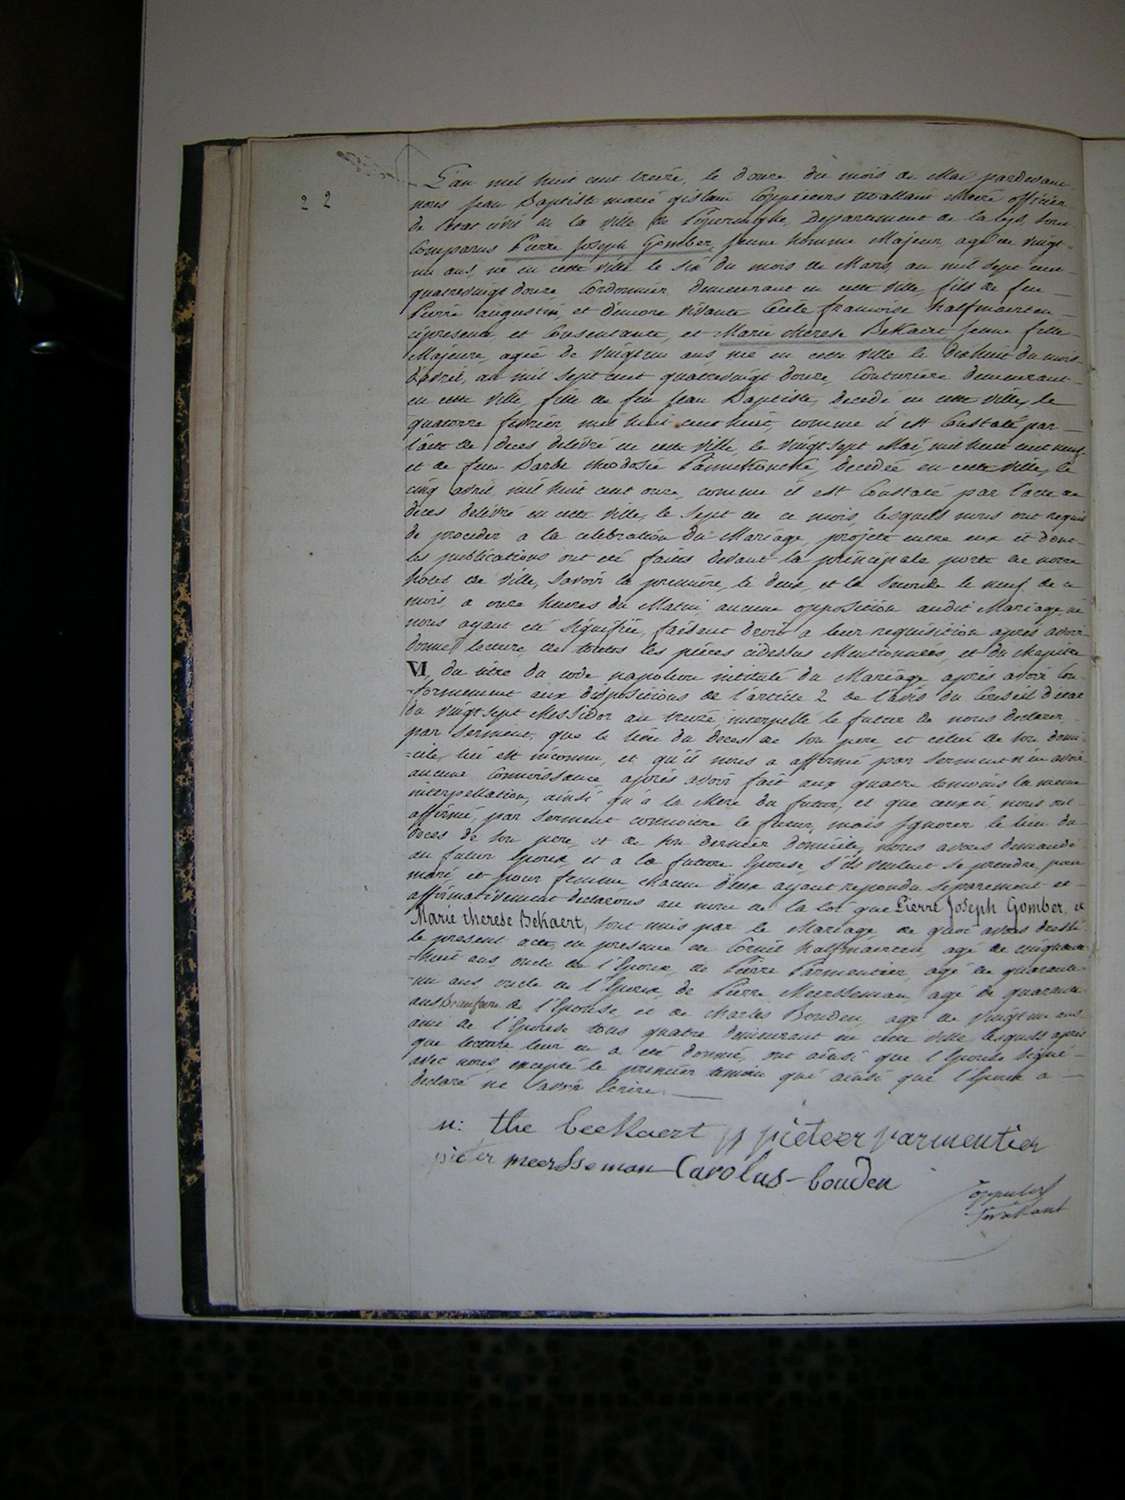 22
L'an mil huit cent treize, le douze du mois de Mai pardevant
nous Jean Baptiste marie gislain Coppieters Wallant Maire officier
de l'etat civil de la ville de Poperinghe, departement de la Lys, sont
Comparus Pierre Joseph Gomber, jeune homme Majeur, agé de vingt-
un ans, né en cette ville le six du mois de Mars, an mil sept cent
quatrevingt douze Cordonnier demeurant en cette ville, fils de feu
Pierre augustin, et demeure vivante Cecile francoise halfmaerten
cipresente et Consentante, et Marie therese BeKaert jeune fille
Majeure, agée de vingt un ans née en cette ville le dixhuit du mois
d'avril, an mil sept cent quatrevingt douze, Couturiere demeurant
en cette ville, fille de feu Jean Baptiste, decedé en cette ville, le
quatorze fevrier mil huit cent huit, comme il est Constaté par
l'acte de deces delivré en cette ville, le vingt sept Mai mil huit cent neuf
et de feue Barbe theodosie decedée en cette ville, le
cinq avril mil huit cent onze, comme il est Constaté par l'acte de
deces delivré en cette ville, le sept de ce mois, lesquels nous ont requis
de proceder a la celebration du Mariage, projetté entre eux et dont
les publications ont été faites devant la principale porte de notre
hotel de ville, savoir la premiere, le deux, et la seconde le neuf de ce
mois, a onze heures du Matin, aucune opposition audit Mariage, ne
nous ayant été signifiée, faisant droit a leur requisition après avoir
donné lecture de toutes les pièces cidessus Mentionnées, et du chapitre
VI, du titre du code napoleon intitulé du Mariage après avoir Con-
-formement aux dispositions de l'article 2 de l'avis du Conseil d'etat
du vingt sept Messidor an treize, interpellé le futur de nous declarer
par serment, que le lieu du deces de son pere, et celui de son domi-
-cile, lui est inconnu, et qu'il nous a affirmé par serment n'en avoir
aucune Connoissance après avoir fait aux quatre temoins la meme
interpellation, ainsi qu'à la Mere du futur, et que ceux ci nous ont
affirmé, par serment connoitre le futur, mais ignorer le lieu du
deces de son pere, et de son dernier domicile, nous avons demandé
au futur Epoux, et a la future Epouse, s'ils veulent se prendre pour
mari et pour femme chacun d'eux ayant repondu separement et
affirmativement declarons au nom de la loi que Pierre Joseph Gomber, et
Marie therese BeKaert, sont unis par le Mariage de quoi avons dressé
le present acte, en presence de Cornil halfmaerten, agé de cinquante
-huit ans oncle de l'Epoux, de Pierre Parmentier, agé de quarante
-un ans oncle de l'Epoux, de Pierre Meersseman, agé de quarante
ans Beaufrere de l'Epouse, et de Charles Bouden, agé de vingt un ans
ami de l'Epouse tous quatre demeurant en cette ville, lesquels après
que lecture leur en a été donnée, ont ainsi que l'Epouse signé
avec nous, excepté le premier temoin qui ainsi que l'Epoux a
declaré ne savoir Ecrire.
m: the beeKaert pieter parmentier
pieter meersseman Carolus bouden